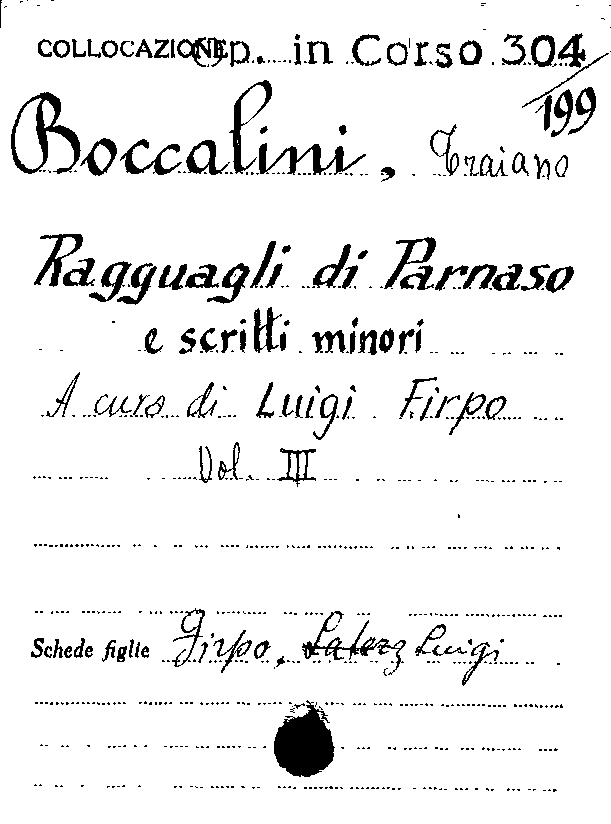 COLLOCAZIONE Op. in Corso 304/199
Boccalini, Traiano
Ragguagli di Parnaso
e scritti minori
A cura di Luigi Firpo
Vol. III
Schede figlie Firpo, Laterz Luigi